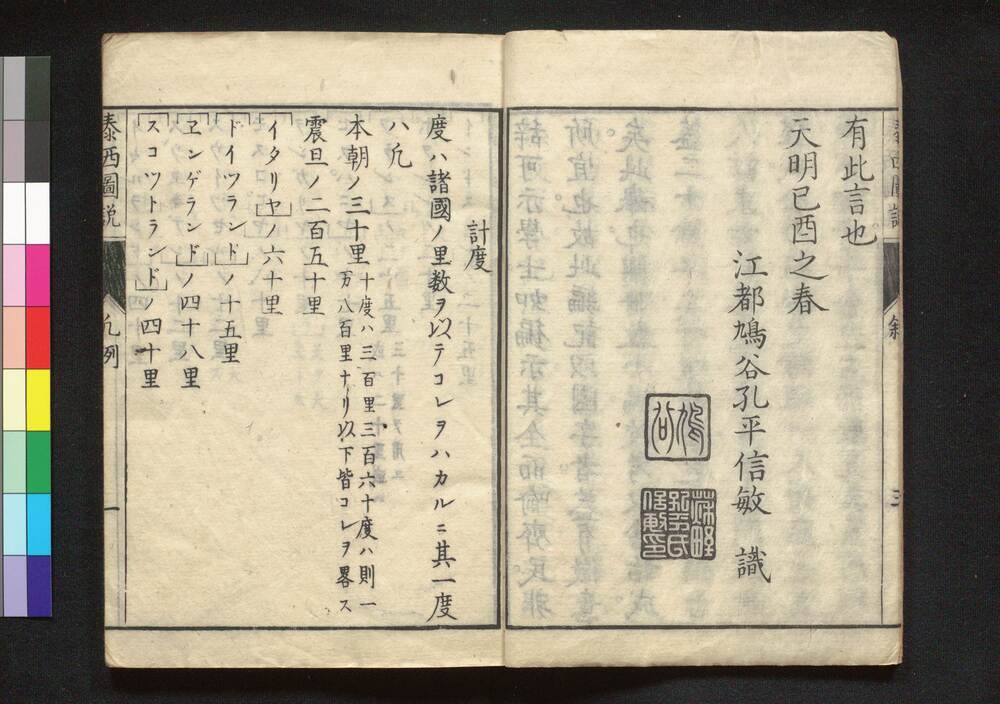 有此言也。
天明己酉之春
江都鳩谷孔平信敏　識
鳩谷
計度
度ハ諸國ノ里数ヲ以テコレヲハカルニ其一度
ハ凡
本朝ノ三十里
十度ハ三百里三百六十度ハ則一
万八百里ナリ以下皆コレヲ畧ス
震旦ノ二百五十里
イタリヤノ六十里
ドイツランドノ十五里
ヱンゲランドノ四十八里
スコツトランドノ四十里
泰西圖説
凡例
一